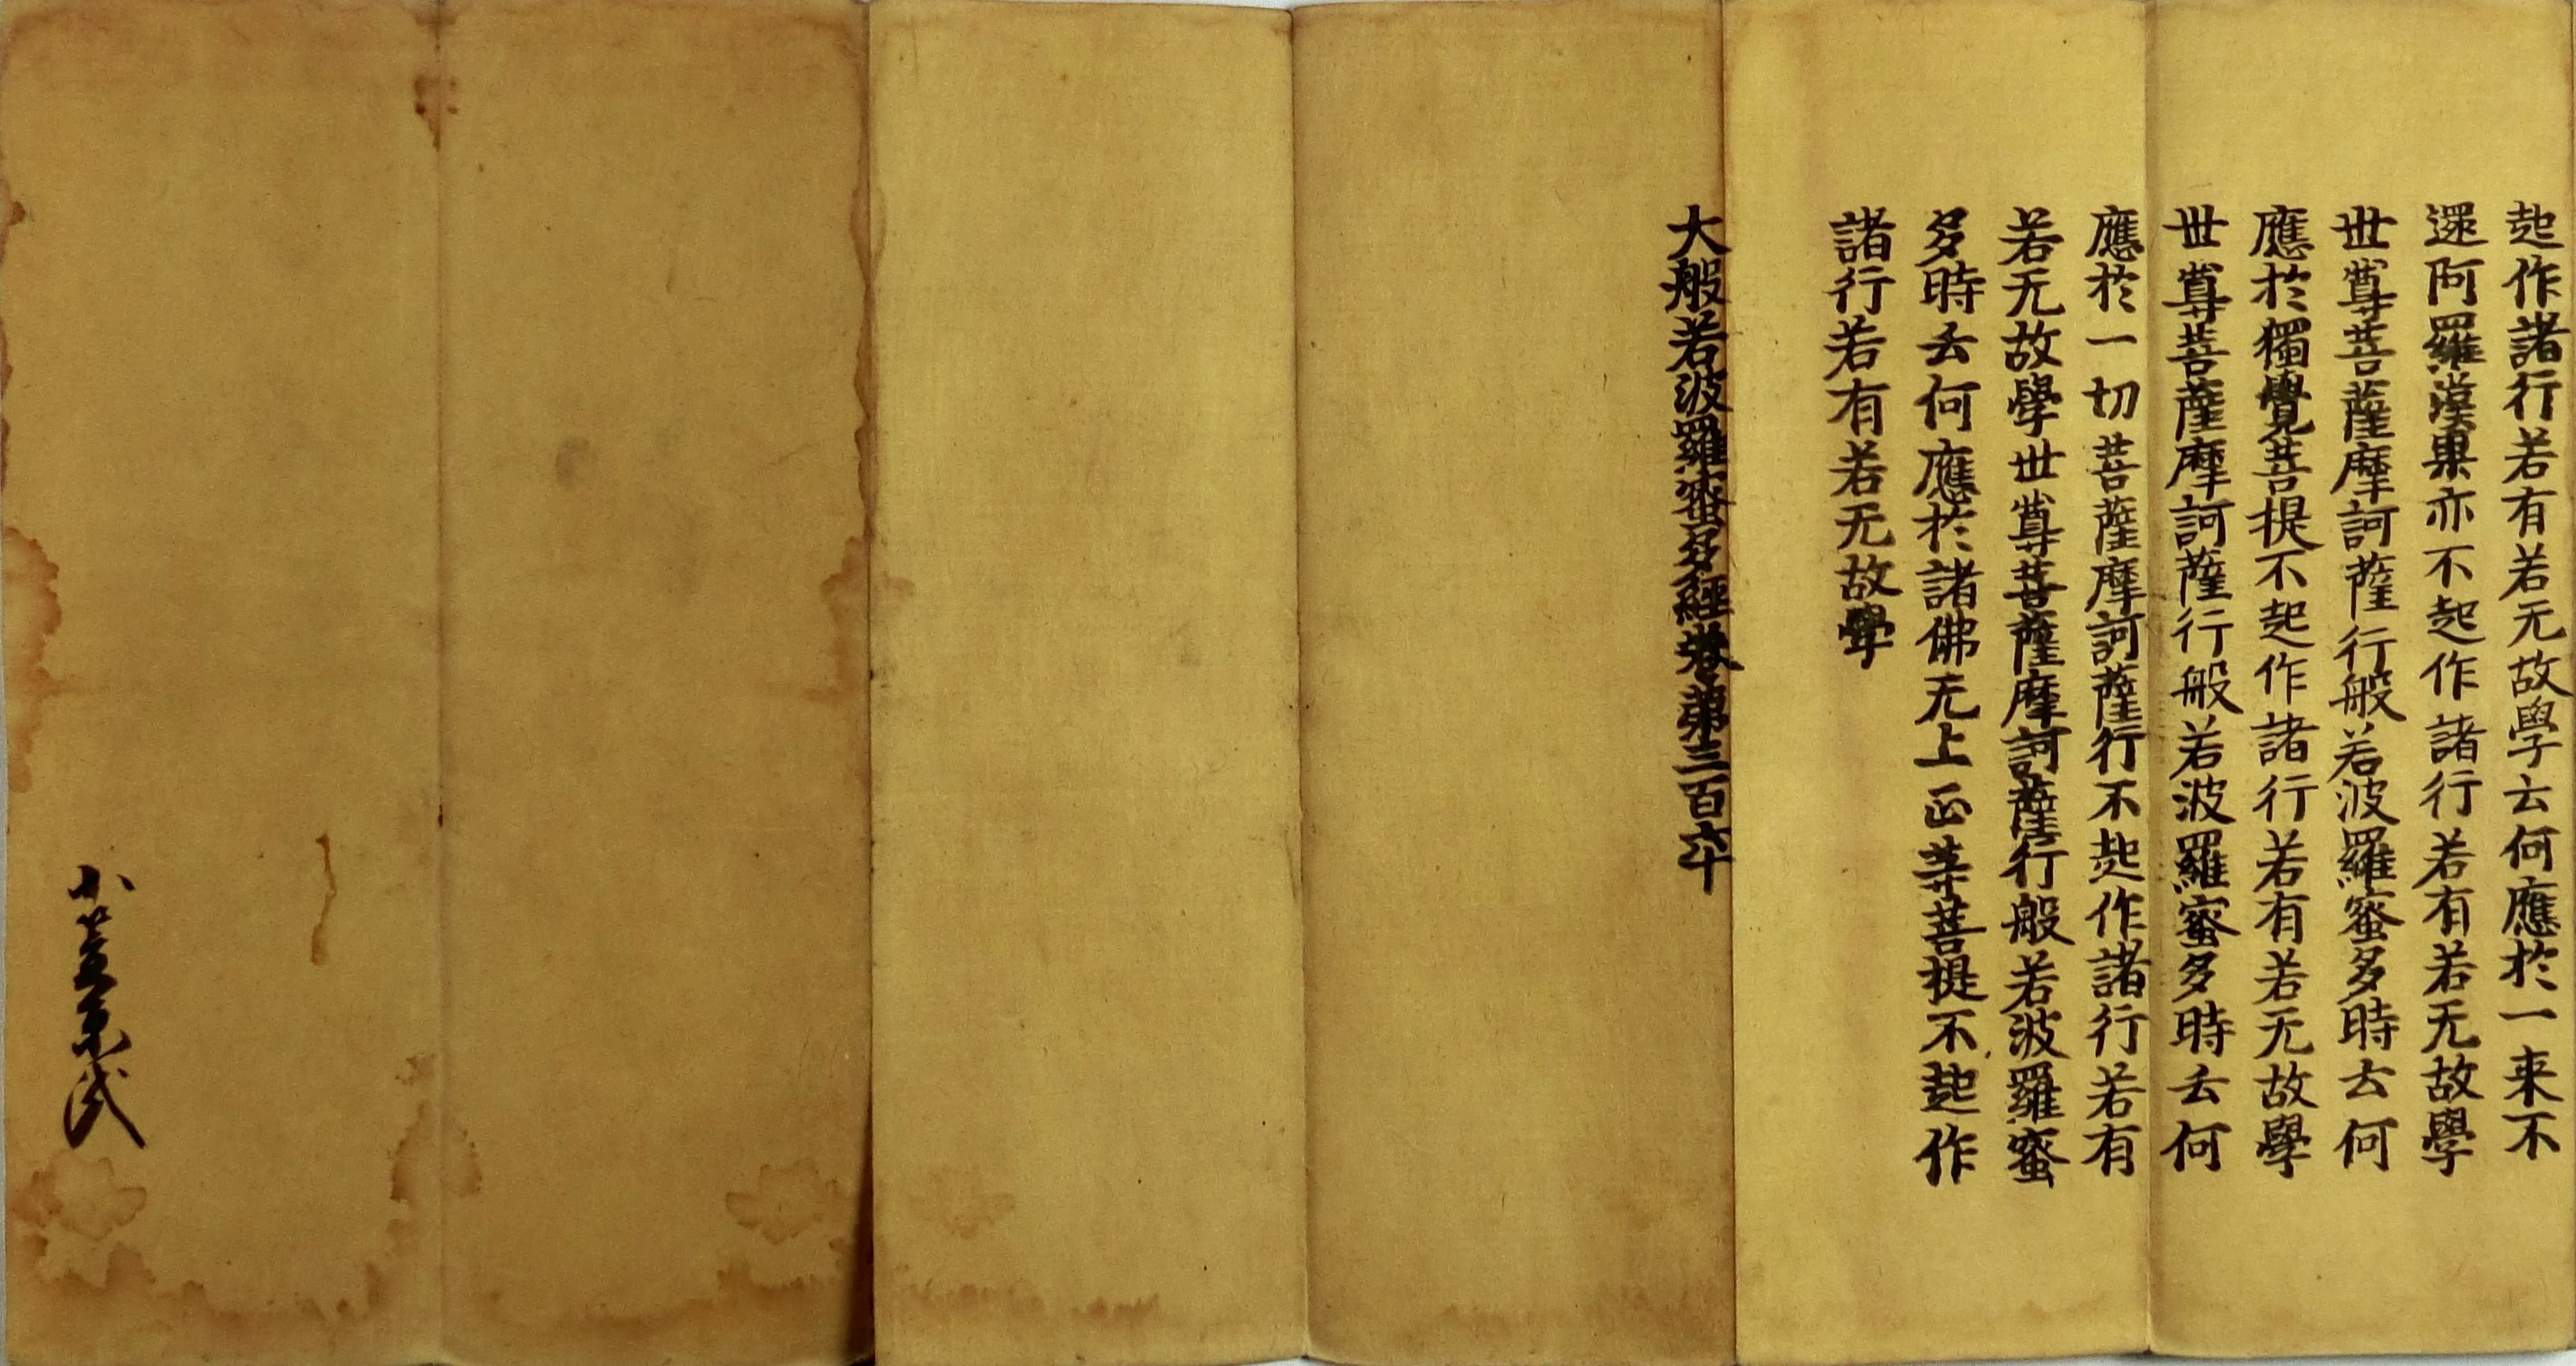 起作諸行若有若无故學云何應於一来不
還阿羅漢果亦不起作諸行若有若无故學
世尊菩薩摩訶薩行般若波羅蜜多時云何
應於獨覺菩提不起作諸行若有若无故學
世尊菩薩摩訶薩行般若波羅蜜多時云何
應於一切菩薩摩訶薩行不起作諸行若有
若无故學世尊菩薩摩訶薩行般若波羅蜜
多時云何應於諸佛无上正等菩提不起作
諸行若有若无故學
大般若波羅蜜多經卷第三百六十